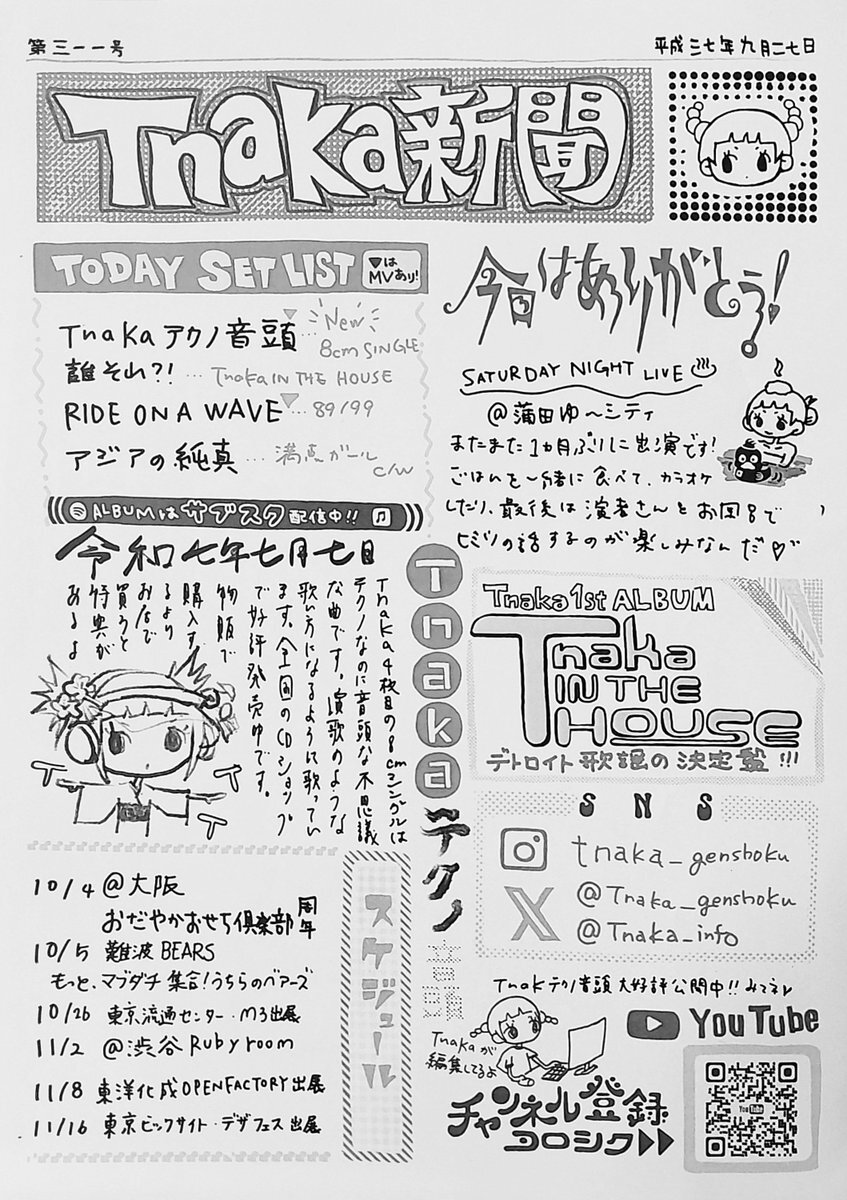 第三一一号
平成三七年九月二七日
Tnaka新聞
TODAY SET LIST
▼はMVあり!
Tnakaテクノ音頭…New 8cm SINGLE
誰それ?!…Tnaka IN THE HOUSE
RIDE ON A WAVE…89/99
アジアの純真…満点ガール c/w
ALBUMはサブスク配信中!!
今日はありがとう!
SATURDAY NIGHT LIVE
@蒲田ゆ〜シティ
またまた1ヵ月ぶりに出演です!
ごはんを一緒に食べて、カラオケ
したり、最後は演者さんとお風呂で
ヒミツの話するのが楽しみなんだ♡
令和七年七月七日
Tnaka4枚目の8cmシングルは
テクノなのに音頭な不思議
な曲です。演歌のような
歌い方になるように歌ってい
ます。全国のCDショップ
で好評発売中です。
物販で
購入す
るより
お店で
買うと
特典が
あるよ
T
T
T
Tnakaテクノ音頭
Tnaka 1st ALBUM
Tnaka
IN THE
HOUSE
デトロイト歌謡の決定盤!!!
SNS
tnaka_genshoku
@Tnaka_genshoku
@Tnaka_info
スケジュール
10/4 @大阪
おだやかおせち倶楽部周年
10/5 難波BEARS
もっと、マブダチ集合!うちらのベアーズ
10/26 東京流通センター・M3出展
11/2 @渋谷Ruby room
11/8 東洋化成OPENFACTORY出展
11/16 東京ビックサイト・デザフェス出展
Tnakテクノ音頭大好評公開中!!みてネ
Tnakaが
編集してるよ
YouTube
チャンネル登録
ヨロシク▶▶
YouTube